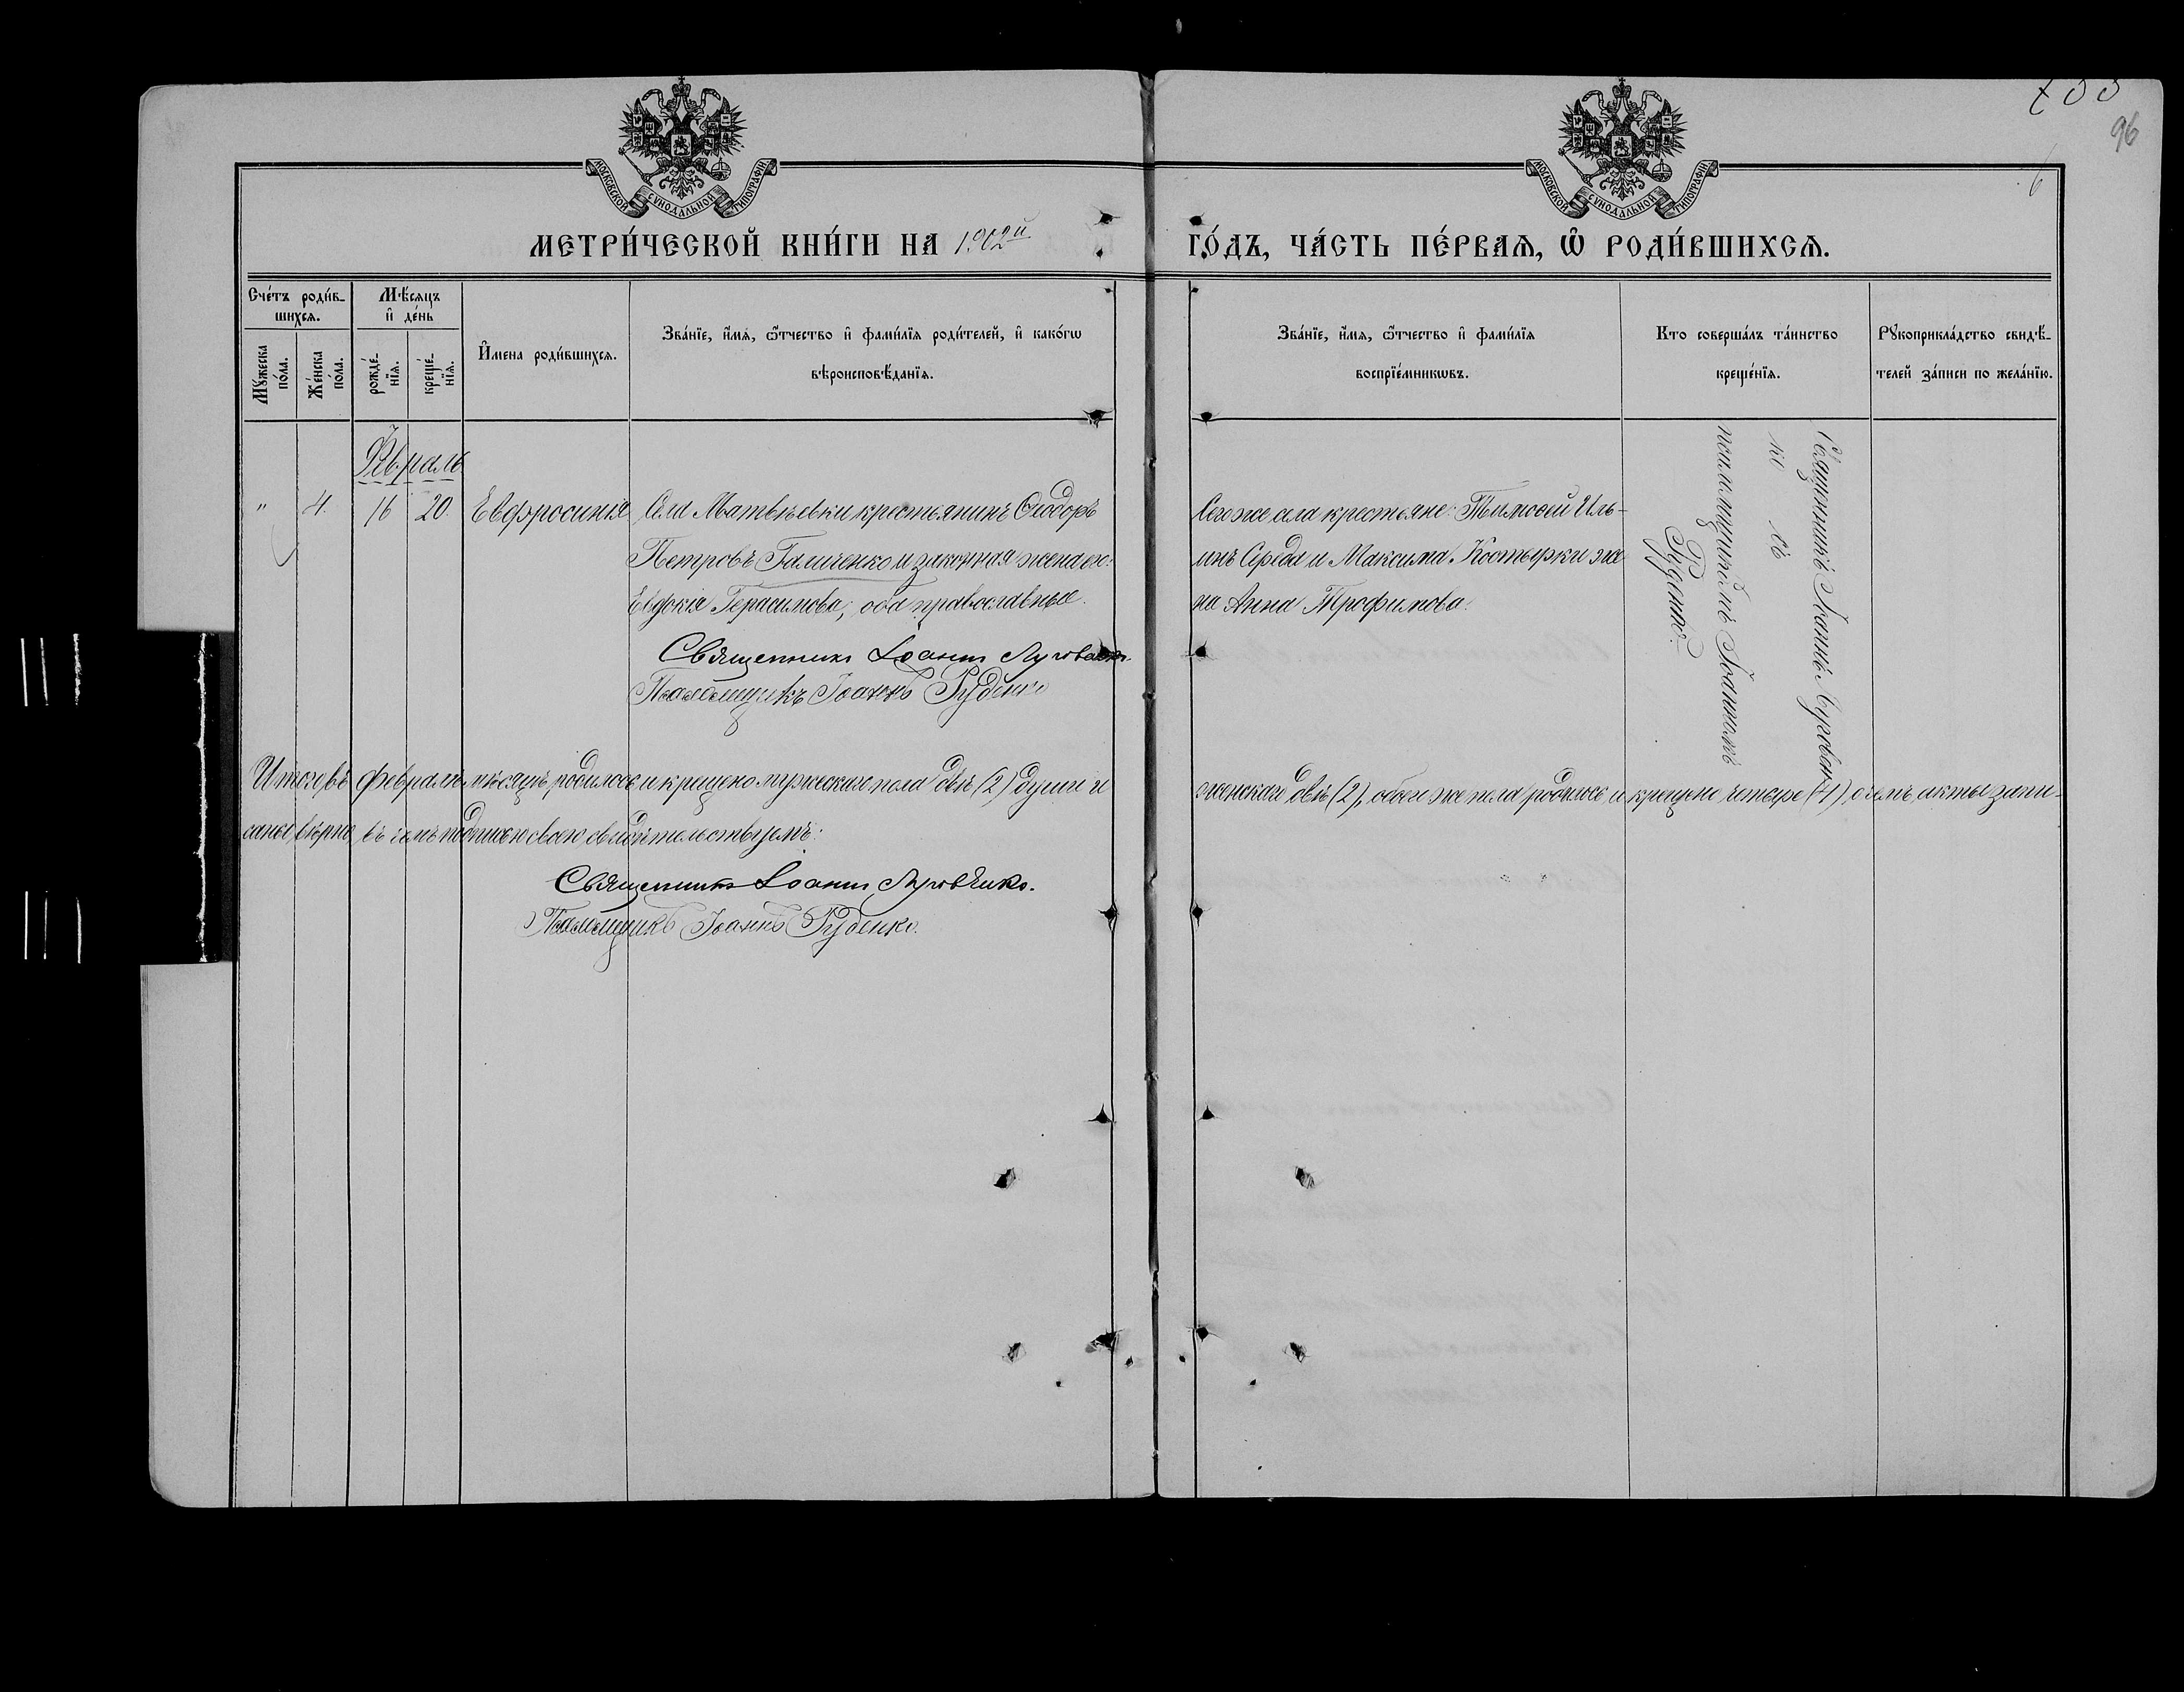 133
96
6
МОСКОВСКОЙ СУНОДАЛЬНОЙ ТИПОГРАФІИ
МОСКОВСКОЙ СУНОДАЛЬНОЙ ТИПОГРАФІИ
МЕТРИ́ЧЕСКОЙ КНИ́ГИ НА 1902й
ГО́ДЪ, ЧА́СТЬ ПЕ́РВАѦ, Ѽ РОДИ́ВШИХСѦ.
Сче́тъ роди́в-
шихсѧ.
Мꙋ́жеска
по́ла.
Же́нска
по́ла.
Мѣ́сѧцъ
и҆ де́нь
рожде́-
нїѧ.
креще́-
нїѧ.
И҆мена роди́вшихсѧ.
Зва́нїе, и҆́мѧ, ѻ҆́тчество и҆ фами́лїѧ роди́телей, и҆ како́гѡ
вѣроисповѣ́данїѧ.
Зва́нїе, и҆́мѧ, ѻ҆́тчество и҆ фами́лїѧ
воспрїе́мникѡвъ.
Кто соверша́лъ та́инство
креще́нїѧ.
Рꙋкоприкла́дство свидѣ́-
телей за́писи по жела́нїю.
Февраль
" 4. 16 20. Евфросинія
Села Матвѣевки крестьянинъ Ѳеодоръ
Петровъ Галиченко и законная жена его
Евдокія Герасимова, оба православные.
Священникъ Іоаннъ Луговенко.
Псаломщикъ Іоаннъ Руденко
Сего же села крестьяне: Тимоѳей Иль-
инъ Середа и Максима Костырки же-
на Анна Трофимова.
Священникъ Іоаннъ Луговен-
ко съ
псаломщикомъ Іоанномъ
Руденко.
Итого въ февралѣ мѣсяцѣ родилось и крещено мужеского пола двѣ (2) души и
женскаго двѣ (2), обоего же пола родилось и крещено четыре (4), о чемъ акты запи-
саны вѣрно, въ чемъ подписью своею свидѣтельствуемъ:
Священникъ Іоаннъ Луговенко.
Псаломщикъ Іоаннъ Руденко.